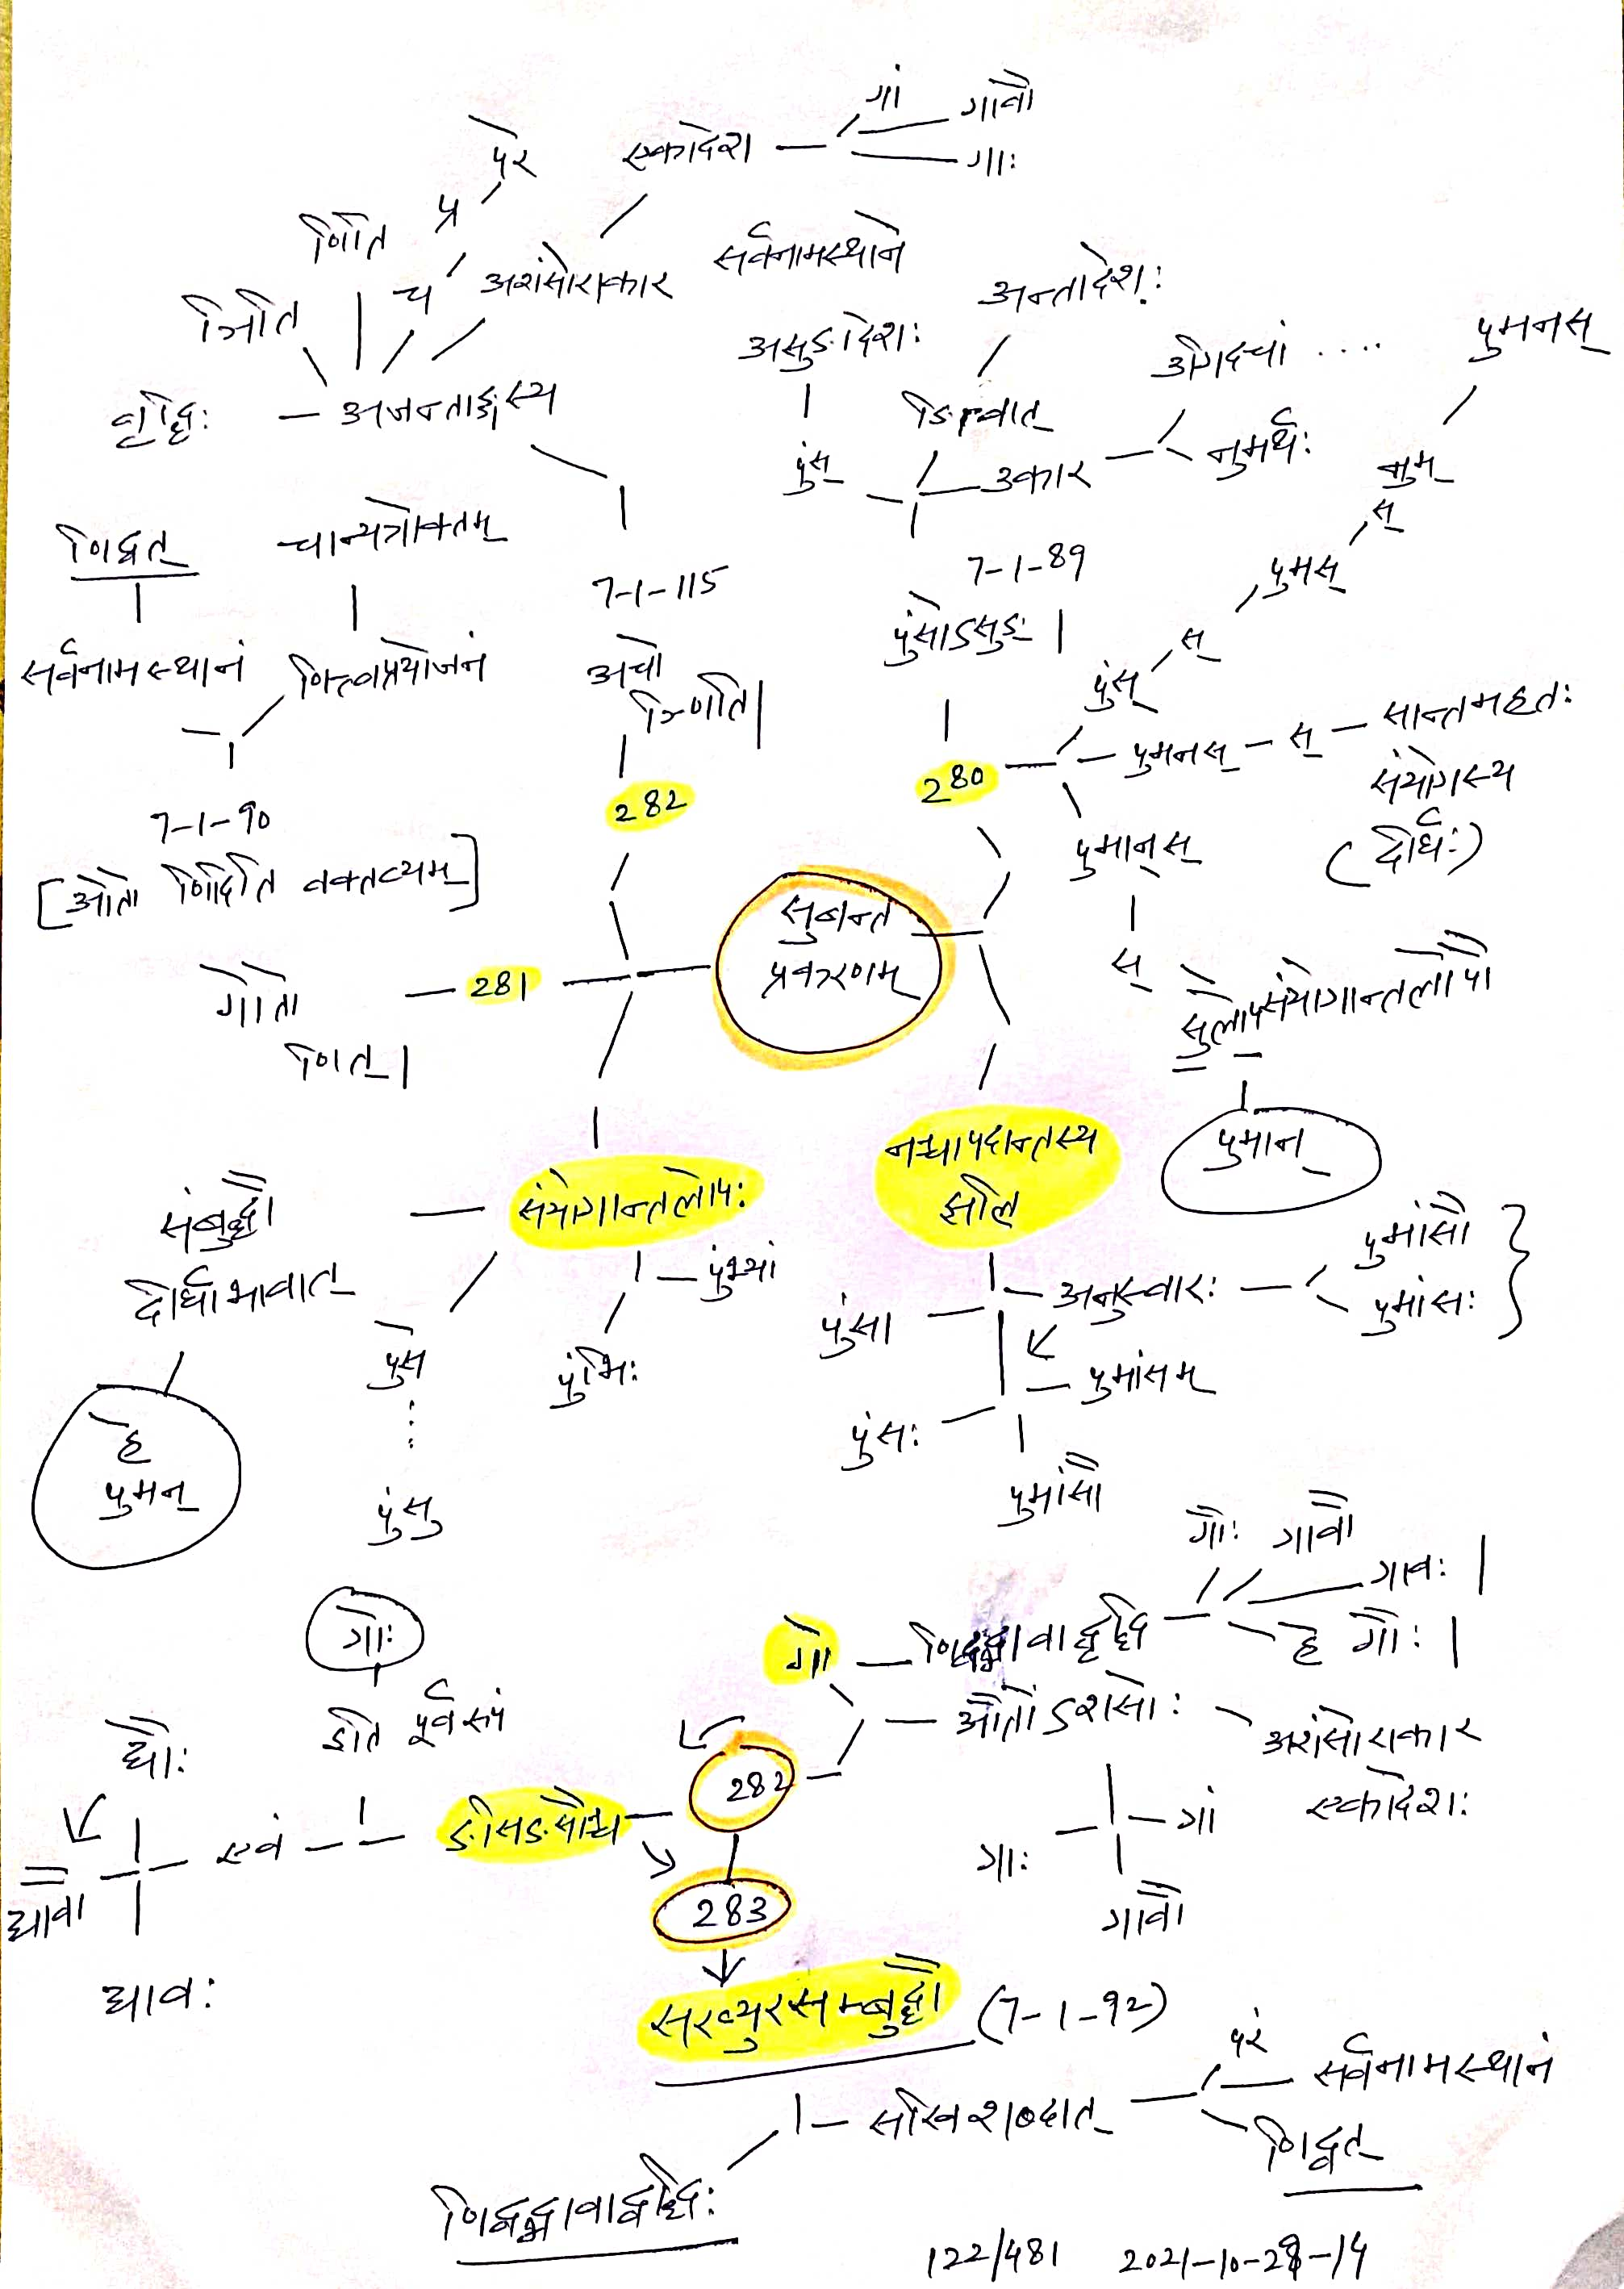 गां
गावौ
परे एकादेश
गाः
णिति प्र
ञिति च अशंसोराकार सर्वनामस्थाने
अन्तादेशः
असुङादेशः उगिदचां .... पुमनस्
वृद्धिः अजन्ताङ्गस्य ङित्वात्
पुंस् उकार नुमर्थः नुम्
स्
णिद्वत् चान्यत्रोक्तम्
7-1-115 7-1-89 पुमस्
पुंसोऽसुङ् |
सर्वनामस्थानं णित्त्वप्रयोजनं अचो स्
ञ्णिति | पुंस्
सान्तमहतः
280 पुमनस् स् संयोगस्य
282
7-1-90 पुमान्स् (दीर्घः)
[ओतो णिदिति वक्तव्यम्]
सुबन्त
प्रकरणम्
गोतो 281 स्
सुलोपसंयोगान्तलोपौ
णित् |
नश्चापदान्तस्य पुमान्
झलि
संबुद्धौ संयोगान्तलोपः
पुमांसौ
दीर्घाभावात् पुंभ्यां पुंसा अनुस्वारः पुमांसः
पुंसे पुंभिः पुमांसम्
हे पुंसः
पुमन् पुमांसौ
पुंसु
गौः गावौ
गावः |
गोः गो णिद्वद्भावाद्वृद्धि हे गौः |
द्यौः ङति पूर्वरूपं औतोऽशसोः अशंसोराकार
282 एकादेशः
एवं ङसिङसोश्च गां
द्यावौ गाः
283 गावौ
द्यावः
सख्युरसम्बुद्धौ (7-1-92)
परं
सर्वनामस्थानं
सखिशब्दात्
णिद्वत्
णिद्वद्भावाद्वृद्धिः
122/481 2021-10-28-14